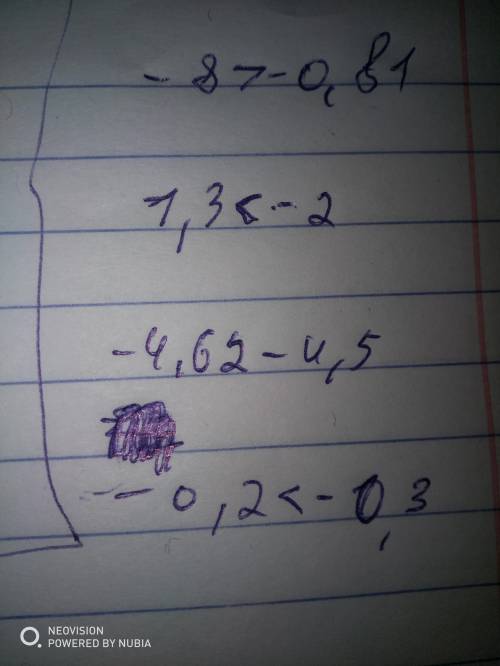 -8>-0,81
1,3<-2
-4,62-4,5
-0,2<-0,3
NEOVISION
POWERED BY NUBIA